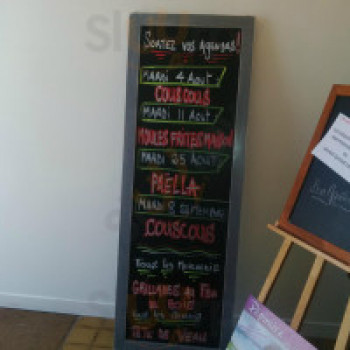 Sortez vos agendas!
MARDI 4 AOUT
COUSCOUS
MARDI 11 AOUT
MOULES FRITES MAISON
MARDI 25 AOUT
PAËLLA
MARDI 8 SEPTEMBRE
COUSCOUS
TOUS LES MERCREDIS
GRILLADES AU FEU
DE BOIS
TOUS LES JEUDIS
TETE DE VEAU